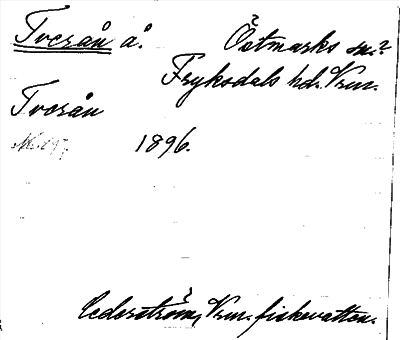 Tverån å. Östmarks sn.?
Fryksdals hd. Vrm.
Tverån
1896.
Cederström, Vrm. fiskevatten.